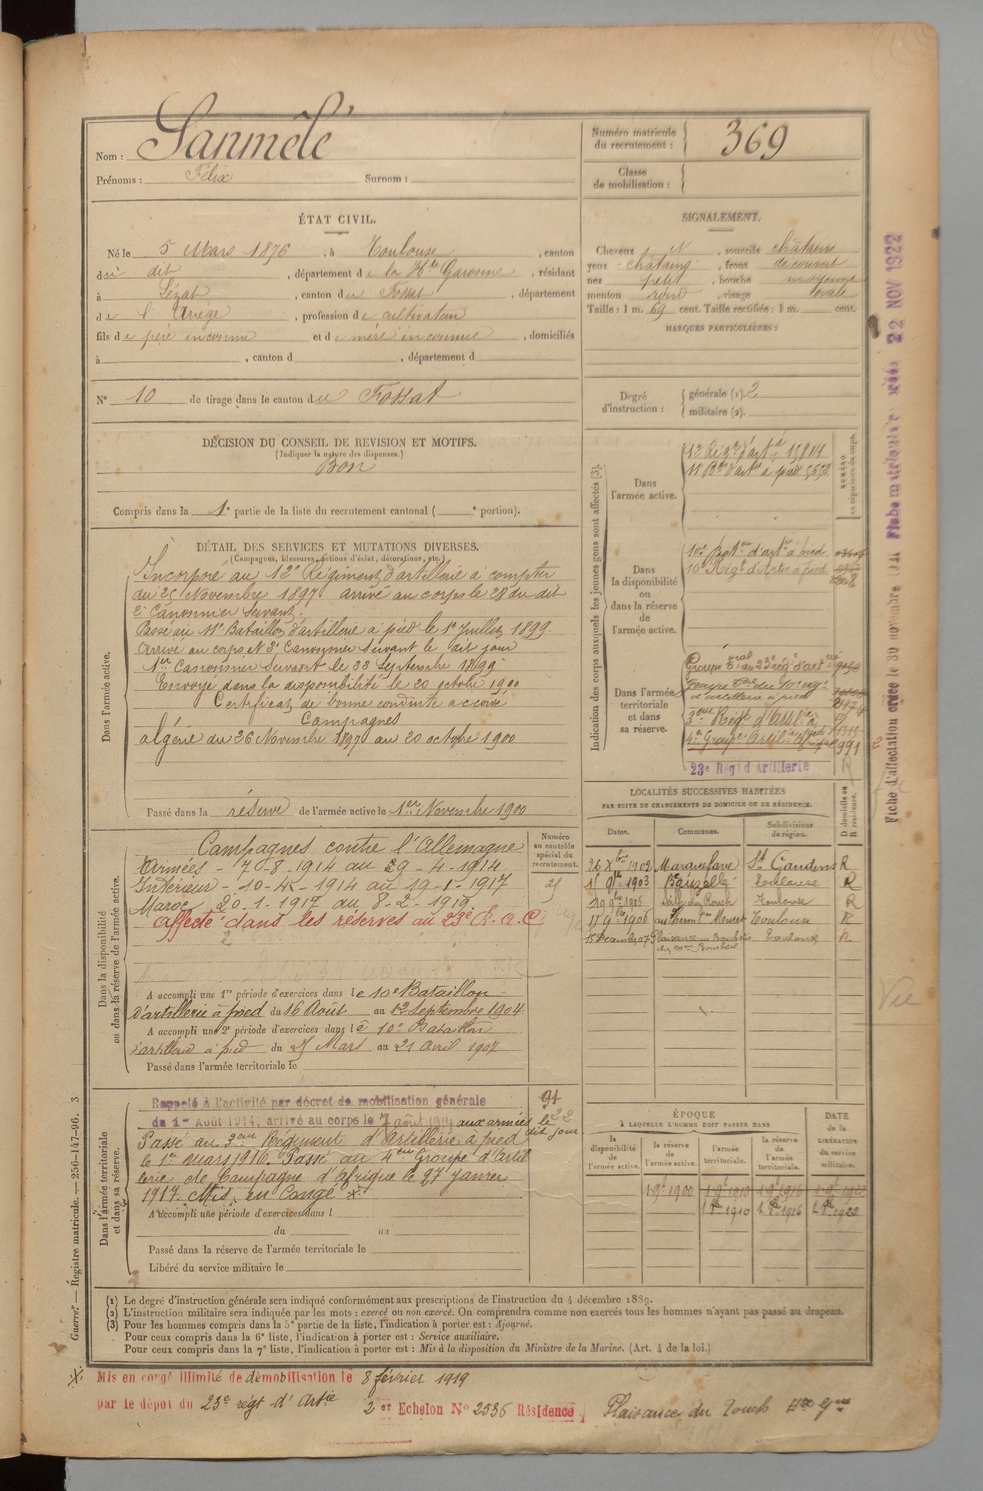 Nom : Sanmélé
Prénoms : Félix Surnom :
Numéro matricule du recrutement : 369
Classe de mobilisation :
ÉTAT CIVIL.
Né le 5 Mars 1876, à Toulouse, canton
du dit, département de la Hte Garonne, résidant
à Lézat, canton du Fossat, département
de l'Ariège, profession de cultivateur
fils de père inconnu et de mère inconnue, domiciliés
à , canton d , département d
N° 10 de tirage dans le canton du Fossat
DÉCISION DU CONSEIL DE REVISION ET MOTIFS.
(Indiquer la nature des dispenses.)
Bon
Compris dans la 1e partie de la liste du recrutement cantonal ( e portion).
SIGNALEMENT.
Cheveux N, sourcils châtains
yeux châtains, front découvert
nez petit, bouche moyenne
menton rond, visage ovale
Taille : 1 m. 69 cent. Taille rectifiée : 1 m. cent.
MARQUES PARTICULIÈRES :
Degré d'instruction : générale (1). 2
militaire (2).
DÉTAIL DES SERVICES ET MUTATIONS DIVERSES.
(Campagnes, blessures, actions d'éclat, décorations, etc.)
Dans l'armée active.
Incorporé au 12e Régiment d'artillerie à compter
du 25 Novembre 1897 arrivé au corps le 28 du dit
2e Canonnier Servant.
Passé au 11e Bataillon d'artillerie à pied le 1er Juillet 1899.
arrivé au corps et 2e Canonnier servant le dit jour
1er Canonnier Servant le 23 Septembre 1899
Envoyé dans la disponibilité le 20 octobre 1900
Certificat de bonne conduite accordé
Campagnes
algérie du 26 Novembre 1897 au 20 octobre 1900
Passé dans la réserve de l'armée active le 1er Novembre 1900
Indication des corps auxquels les jeunes gens sont affectés (3).
NUMÉRO au répertoire du corps.
Dans l'armée active.
12e Régt d'artie
11e Bon d'artie à pied
Dans la disponibilité ou dans la réserve de l'armée active.
10e Baton d'artie à pied
10e Régt d'Artie à pied
Dans l'armée territoriale et dans sa réserve.
Groupe du 23e régt d'artie
d'artillerie à pied
3eme Régt d'Artie à pied
4e Groupe Artie 991
23e Régt d'Artillerie
LOCALITÉS SUCCESSIVES HABITÉES
PAR SUITE DE CHANGEMENTS DE DOMICILE OU DE RÉSIDENCE.
Dates. Communes. Subdivisions de région. D domicile ou R résidence.
26 Xbre 1902 St Gaudens R
1er 9bre 1903 Toulouse R
Toulouse R
Toulouse R
15 Décembre 07 Plaisance Toulouse R
Dans la disponibilité ou dans la réserve de l'armée active.
Numéro au contrôle spécial du recrutement.
Campagnes contre l'Allemagne
Armées - 7-8-1914 au 29-4-1914
Intérieur - 10-4-1914 au 19-1-1917
Maroc 20-1-1917 au 8-2-1919
affecté dans les réserves au 23e R.A.C
A accompli une 1re période d'exercices dans le 10e Bataillon
d'artillerie à pied du 16 Août au 12 Septembre 1904
A accompli une 2e période d'exercices dans le 10e Bataillon
d'artillerie à pied du 25 Mars au 21 Avril 1907
Passé dans l'armée territoriale le
Dans l'armée territoriale et dans sa réserve.
Rappelé à l'activité par décret de mobilisation générale
du 1er Août 1914, arrivé au corps le 7 août 1914 aux armées le dit jour.
Passé au 3eme Régiment d'artillerie à pied
le 1er mars 1916. Passé au 4eme Groupe d'artil
lerie de Campagne d'Afrique le 27 janvier
1917. Mis en Congé
A accompli une période d'exercices dans l
du au
Passé dans la réserve de l'armée territoriale le
Libéré du service militaire le
ÉPOQUE
À LAQUELLE L'HOMME DOIT PASSER DANS
la disponibilité de l'armée active. la réserve de l'armée active. l'armée territoriale. la réserve de l'armée territoriale.
DATE de la LIBÉRATION du service militaire.
1 9e 1900 1 9e 1910 1 9e 1916 1 9e 1922
1 8bre 1910 1 8bre 1916 1 8bre 1922
(1) Le degré d'instruction générale sera indiqué conformément aux prescriptions de l'instruction du 4 décembre 1889.
(2) L'instruction militaire sera indiquée par les mots : exercé ou non exercé. On comprendra comme non exercés tous les hommes n'ayant pas passé au drapeau.
(3) Pour les hommes compris dans la 5e partie de la liste, l'indication à porter est : Ajourné.
Pour ceux compris dans la 6e liste, l'indication à porter est : Service auxiliaire.
Pour ceux compris dans la 7e liste, l'indication à porter est : Mis à la disposition du Ministre de la Marine. (Art. 4 de la loi.)
Mis en congé illimité de démobilisation le 8 février 1919
par le dépôt du 23e régt d'Artie 2er Echelon N° 2536 Résidence, Plaisance du Touch Hte Gne
Guerre. — Registre matricule. — 256-147-96. 3
Fiche d'affectation créée le 30 novembre
Fiche matriculaire créée 22 NOV 1922
Vu